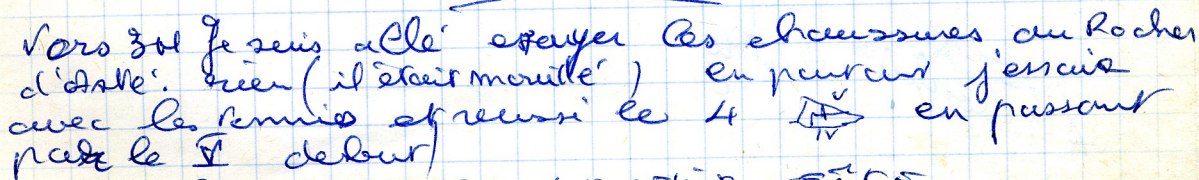 Vers 3H Je suis allé essayer les chaussures au Rocher
d'Avté: rien (il était mouillé) en partant j'essaie
avec les tennis et réussi le 4 en passant
par le V debut)